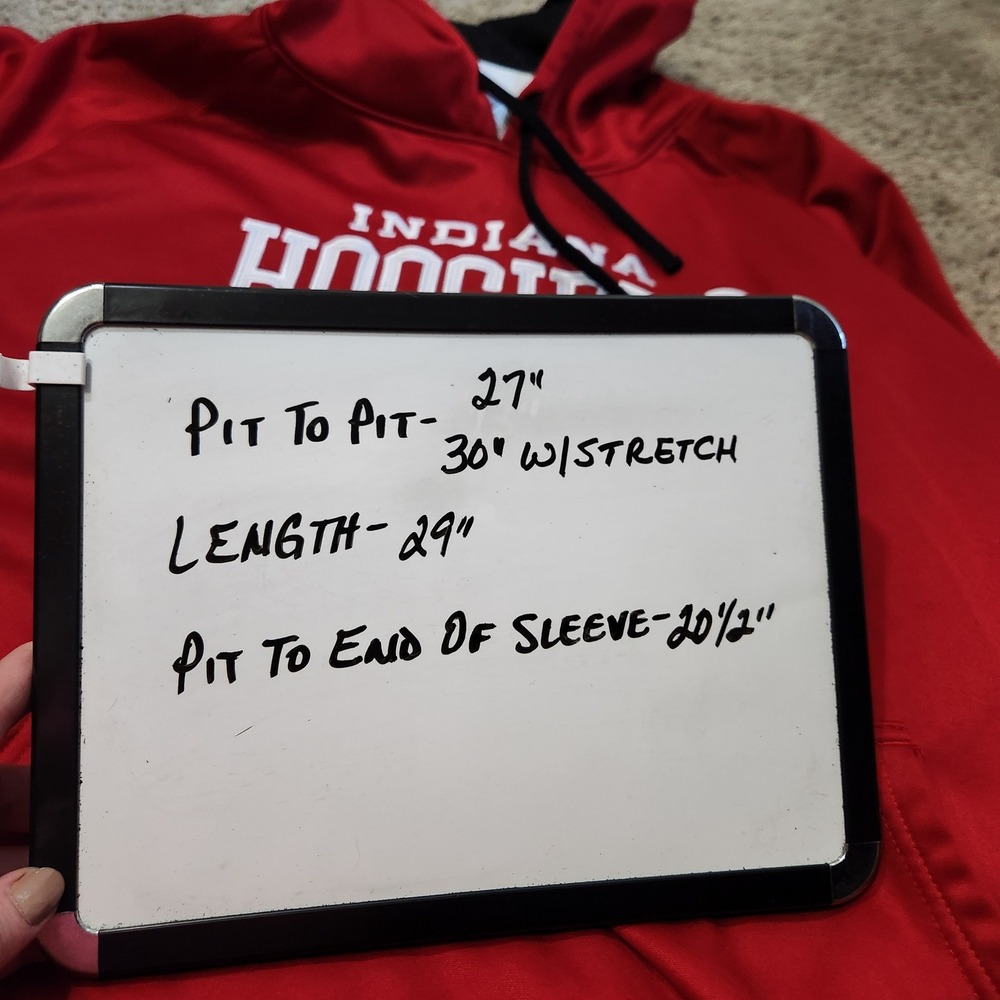 INDIANA
HOOSIERS
PIT TO PIT- 27"
30" W/STRETCH
LENGTH- 29"
PIT TO END OF SLEEVE-20 1/2"